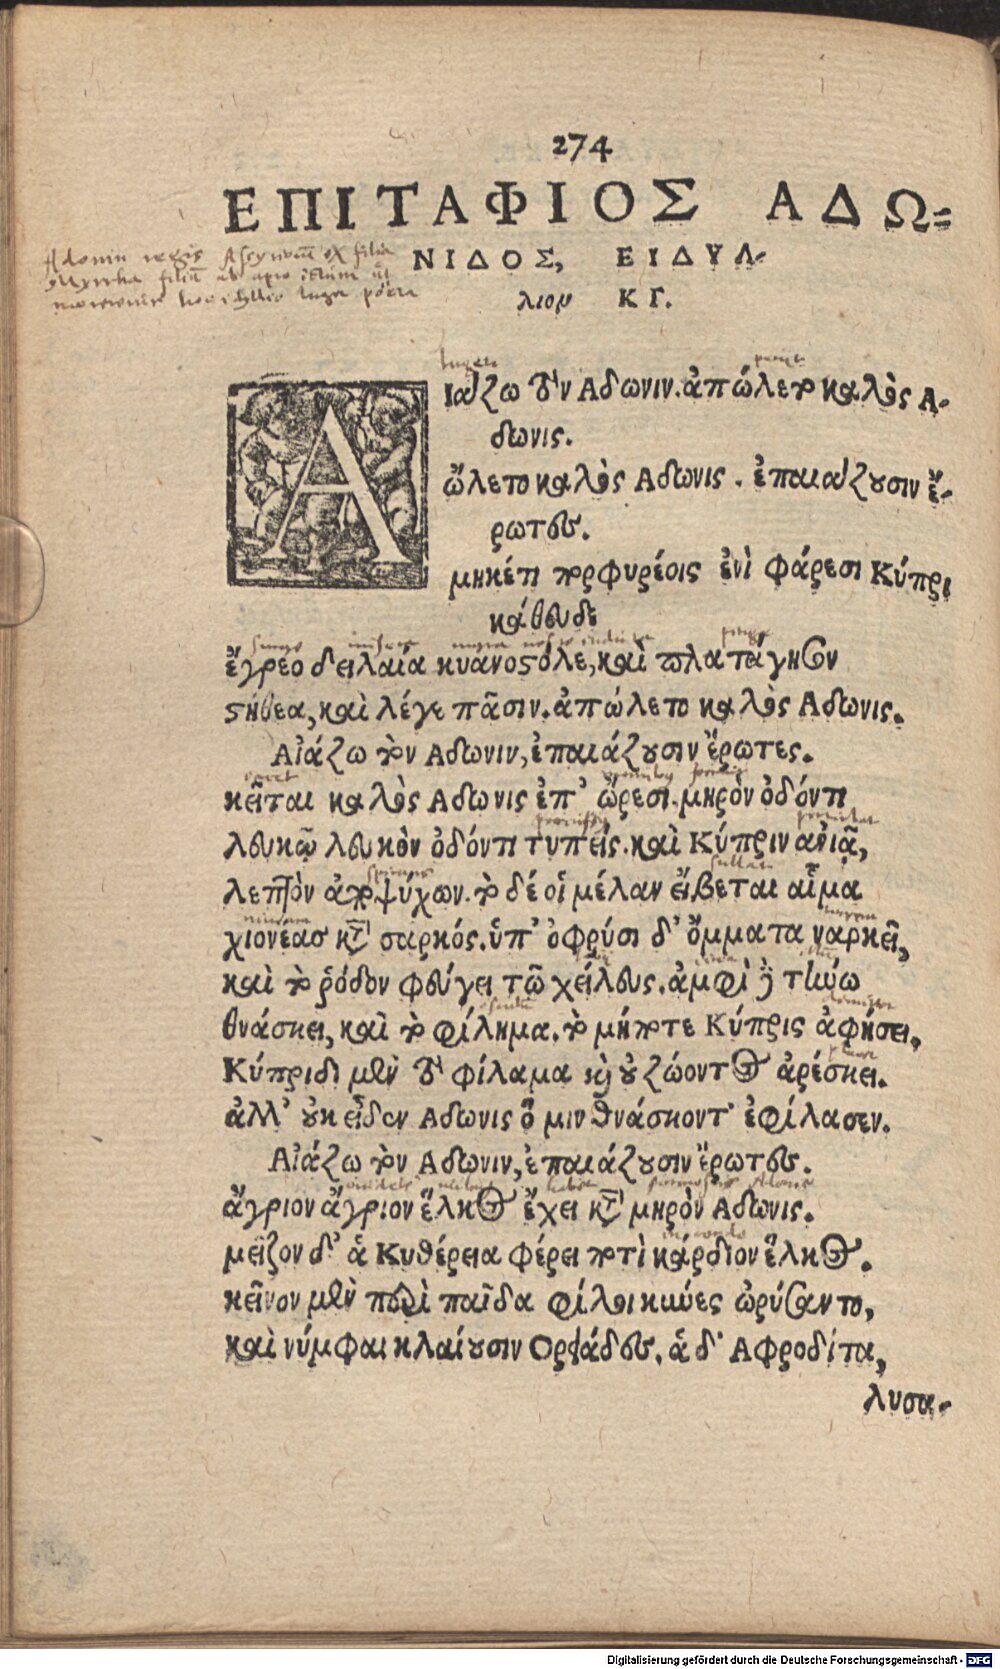 274
ΕΠΙΤΑΦΙΟΣ ΑΔΩ=
ΝΙΔΟΣ, ΕΙΔΥΛ-
λιον ΚΓ.
Adonin regis Assyriorū ex filia
Myrrha filiū ab apro ictum
morientem hoc idyllio luget poeta
luget
periit
ΑΙάζω τὸν Αδωνιν. ἀπώλετο καλὸς Α-
δωνις.
ὤλετο καλὸς Αδωνις. ἐπαιάζουσιν ἔ-
ρωτες.
μηκέτι πορφυρέοις ἐνὶ φάρεσι Κύπρι
κάθευδε
surge
ἔγρεο δειλαία κυανοστόλε, καὶ πλατάγησον
στήθεα, καὶ λέγε πᾶσιν. ἀπώλετο καλὸς Αδωνις.
Αἰάζω τὸν Αδωνιν, ἐπαιάζουσιν ἔρωτες.
κεῖται καλὸς Αδωνις ἐπ' ὤρεσι. μηρὸν ὀδόντι
λευκῷ λευκὸν ὀδόντι τυπείς. καὶ Κύπριν ἀνιᾷ,
λεπτὸν ἀποψύχων. τὸ δέ οἱ μέλαν εἴβεται αἷμα
χιονέασ κατὰ σαρκός. ὑπ' ὀφρύσι δ' ὄμματα ναρκεῖ,
καὶ τὸ ῥόδον φεύγει τῶ χείλευς. ἀμφὶ δὲ τήνῳ
θνάσκει, καὶ τὸ φίλημα. τὸ μήποτε Κύπρις ἀφήσει.
Κύπριδι μὲν τὸ φίλαμα καὶ οὐ ζώοντος ἀρέσκει.
ἀλλ' οὐκ εἶδεν Αδωνις ὅ μιν θνάσκοντ' ἐφίλασεν.
Αἰάζω τὸν Αδωνιν, ἐπαιάζουσιν ἔρωτες.
ἄγριον ἄγριον ἕλκος ἔχει κατὰ μηρὸν Αδωνις.
μεῖζον δ' ἁ Κυθέρεια φέρει ποτὶ κάρδιον ἕλκος.
κεῖνον μὲν περὶ παῖδα φίλοι κύνες ὠρύσαντο,
καὶ νύμφαι κλαίουσιν Ορειάδες. ἁ δ' Αφροδίτα,
λυσα-
Digitalisierung gefördert durch die Deutsche Forschungsgemeinschaft - DFG